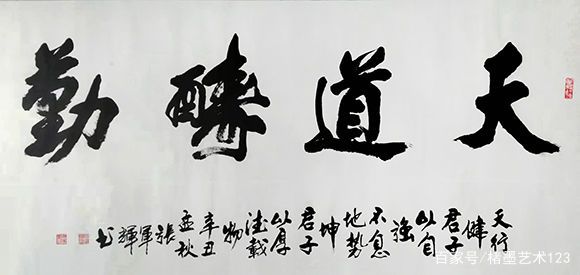 天道醻勤
天行
健
君子
以自
強
不息
地勢
坤
君子
以厚
德載
物
辛丑
孟秋
張
軍
輝
书
百家号/楮墨艺术123